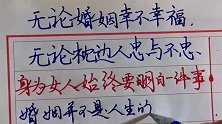 无论婚姻幸不幸福,
无论枕边人忠与不忠、
身为女人始终要明白一件事:
婚姻并不是人生的